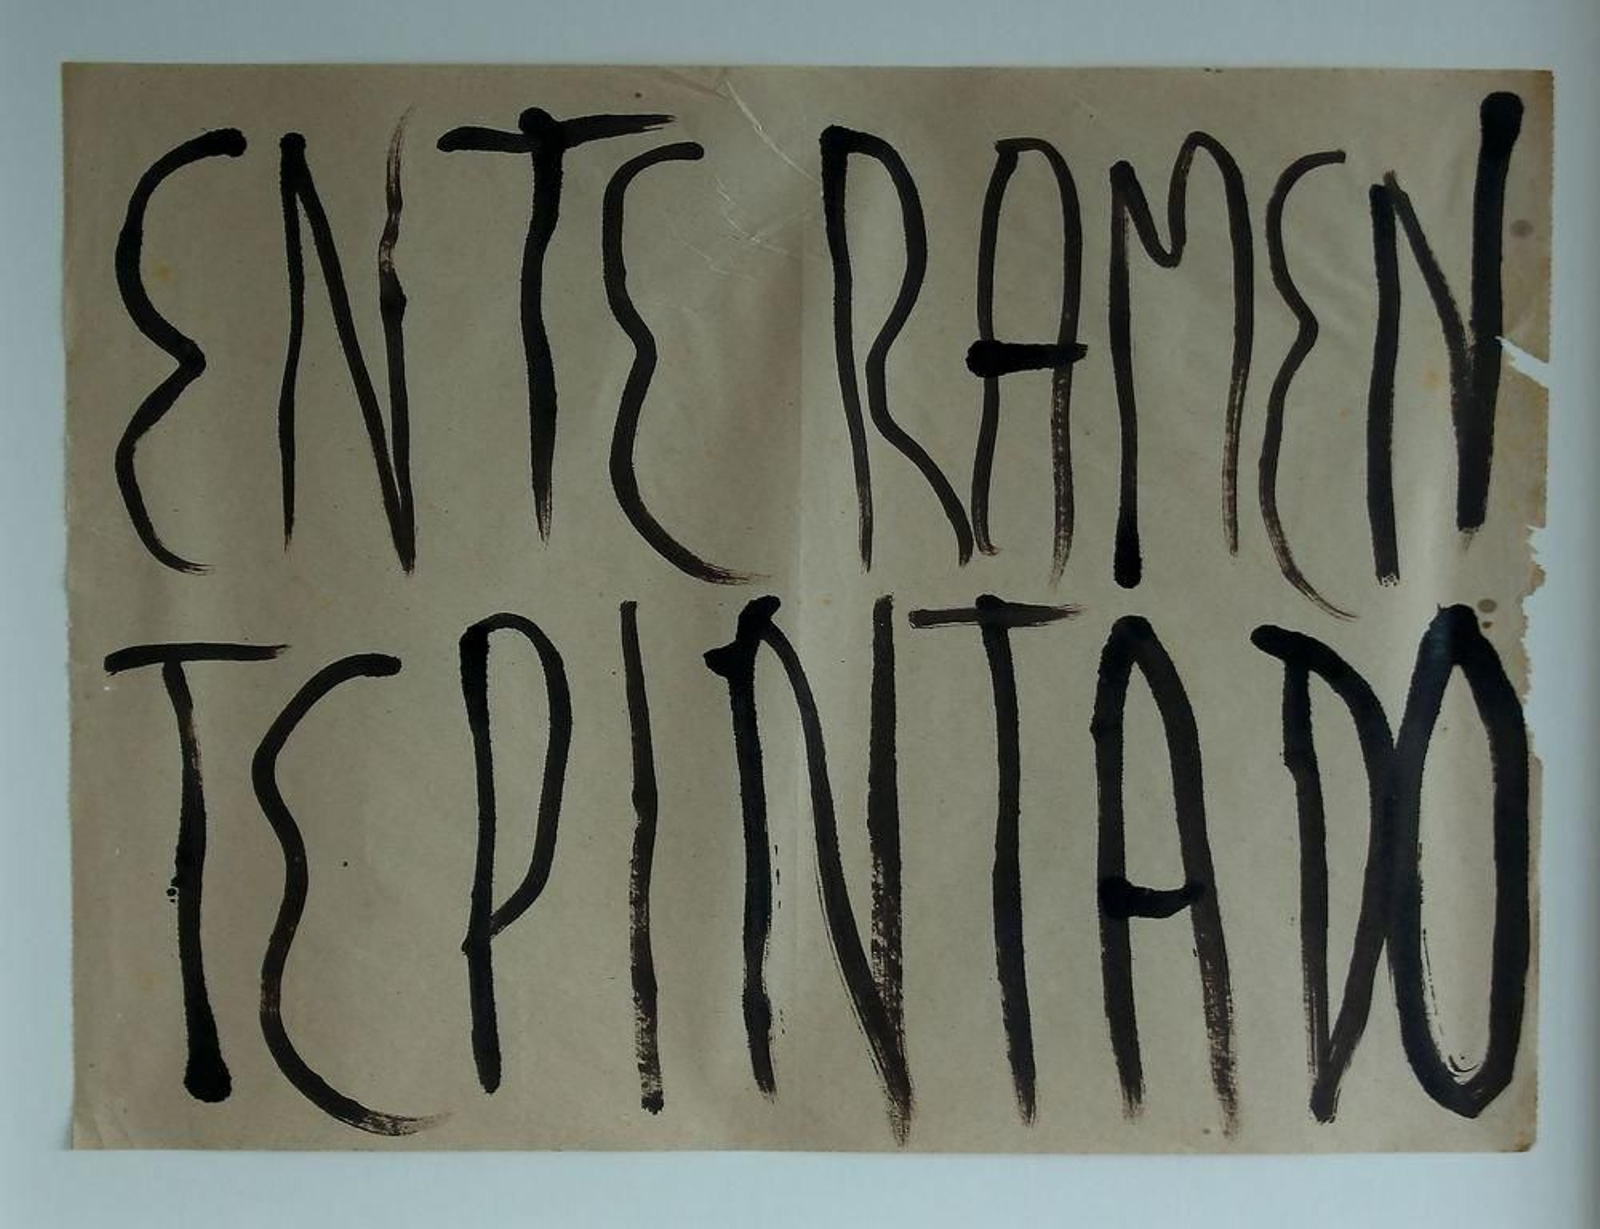 ENTERAMEN
TE PINTADO